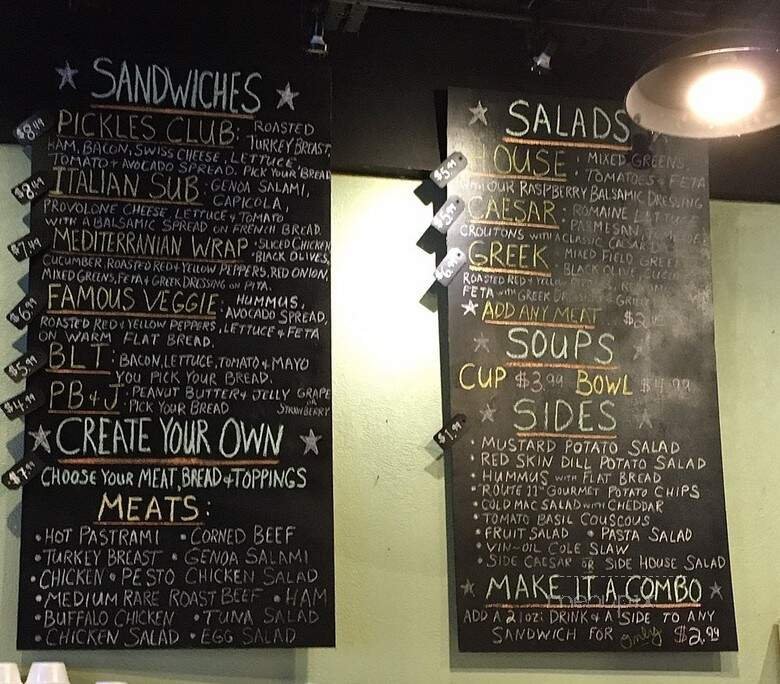 SANDWICHES
$8.49 PICKLES CLUB: ROASTED
TURKEY BREAST,
HAM, BACON, SWISS CHEESE, LETTUCE,
TOMATO + AVOCADO SPREAD. PICK YOUR BREAD
$8.49 ITALIAN SUB: GENOA SALAMI,
CAPICOLA,
PROVOLONE CHEESE, LETTUCE + TOMATO
WITH A BALSAMIC SPREAD ON FRENCH BREAD.
$7.49 MEDITERRANIAN WRAP • SLICED CHICKEN
• BLACK OLIVES,
CUCUMBER, ROASTED RED + YELLOW PEPPERS, RED ONION,
MIXED GREENS, FETA + GREEK DRESSING ON PITA.
$6.99 FAMOUS VEGGIE: HUMMUS,
AVOCADO SPREAD,
ROASTED RED + YELLOW PEPPERS, LETTUCE + FETA
ON WARM FLAT BREAD.
$5.99 BLT: BACON, LETTUCE, TOMATO + MAYO
YOU PICK YOUR BREAD.
$4.99 PB+J • PEANUT BUTTER + JELLY GRAPE
• PICK YOUR BREAD OR STRAWBERRY
CREATE YOUR OWN
CHOOSE YOUR MEAT, BREAD + TOPPINGS
MEATS:
• HOT PASTRAMI • CORNED BEEF
• TURKEY BREAST • GENOA SALAMI
• CHICKEN • PESTO CHICKEN SALAD
• MEDIUM RARE ROAST BEEF • HAM
• BUFFALO CHICKEN • TUNA SALAD
• CHICKEN SALAD • EGG SALAD
SALADS
HOUSE: MIXED GREENS,
TOMATOES + FETA
WITH OUR RASPBERRY BALSAMIC DRESSING
CAESAR: ROMAINE LETTUCE
PARMESAN
CROUTONS WITH A CLASSIC CAESAR
GREEK: MIXED FIELD GREENS
BLACK OLIVE,
ROASTED RED + YELLOW
FETA WITH GREEK
ADD ANY MEAT
SOUPS
CUP $3.99 BOWL $4.99
SIDES
• MUSTARD POTATO SALAD
• RED SKIN DILL POTATO SALAD
• HUMMUS WITH FLAT BREAD
• "ROUTE 11" GOURMET POTATO CHIPS
• COLD MAC SALAD WITH CHEDDAR
• TOMATO BASIL COUSCOUS
• FRUIT SALAD • PASTA SALAD
• VIN-OIL COLE SLAW
• SIDE CAESAR OR SIDE HOUSE SALAD
MAKE IT A COMBO
ADD A 21oz DRINK + A SIDE TO ANY
SANDWICH FOR only $2.99